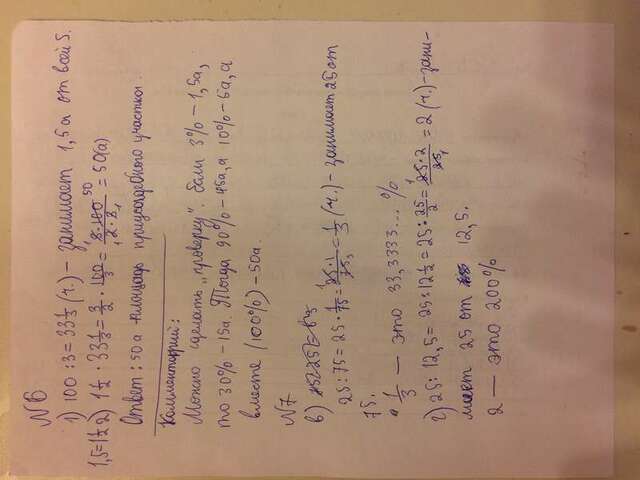 N6
1) 100 : 3 = 33 1/3 (ч.) – занимает 1,5а от всей S.
1,5 = 1 1/2 2) 1 1/2 · 33 1/3 = 3/2 · 100/3 = 3·100/2·3 = 50(а)
Ответ: 50 а площадь приусадебного участка.
Комментарий:
Можно сделать „проверку". Если 3% – 1,5а,
то 30% – 15а. Тогда 90% – 45а, а 10% – 5а, а
вместе (100%) – 50а.
N7
в)
25 : 75 = 25 · 1/75 = 25·1/75 = 1/3 (ч.) – занимает 25 от
75.
1/3 — это 33,3333... %
г) 25 : 12,5 = 25 : 12 1/2 = 25 : 25/2 = 25·2/25 = 2 (ч.) – зани-
мает 25 от 12,5.
2 — это 200%